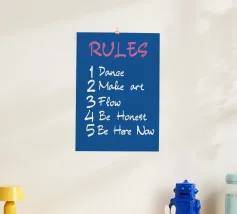 RULES
1 Dance
2 Make art
3 Flow
4 Be Honest
5 Be Here Now